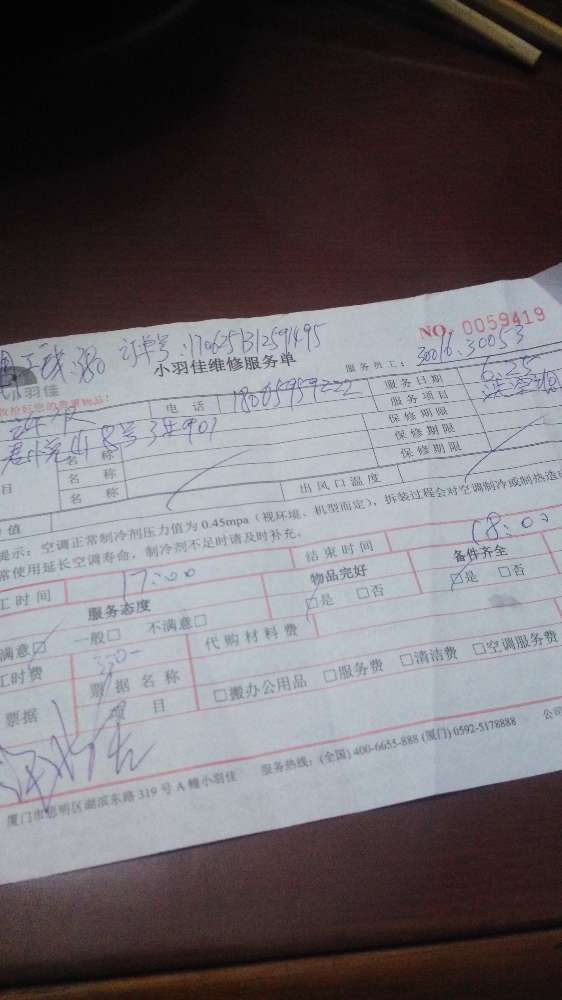 订单号:1706251312591495
NO. 0059419
小羽佳维修服务单
服务员工: 30016.30053
小羽佳
收拾好您的贵重物品!
电话 18005959222 服务日期 6.25
服务项目
号 907 保修期限
名称 保修期限
目 名称 保修期限
名称 出风口温度
值
提示: 空调正常制冷剂压力值为 0.45mpa (视环境、机型而定), 拆装过程会对空调制冷或制热造
常使用延长空调寿命, 制冷剂不足时请及时补充。
工时间 17:00 结束时间 18:00
服务态度 物品完好 备件齐全
满意☑ 一般□ 不满意□ ☑是 □否 ☑是 □否
工时费 330- 代购材料费
票据 票据名称 □搬办公用品 □服务费 □清洁费 □空调服务费
项目
厦门市思明区湖滨东路 319 号 A 幢小羽佳 服务热线: (全国) 400-6655-888 (厦门) 0592-5178888 公司